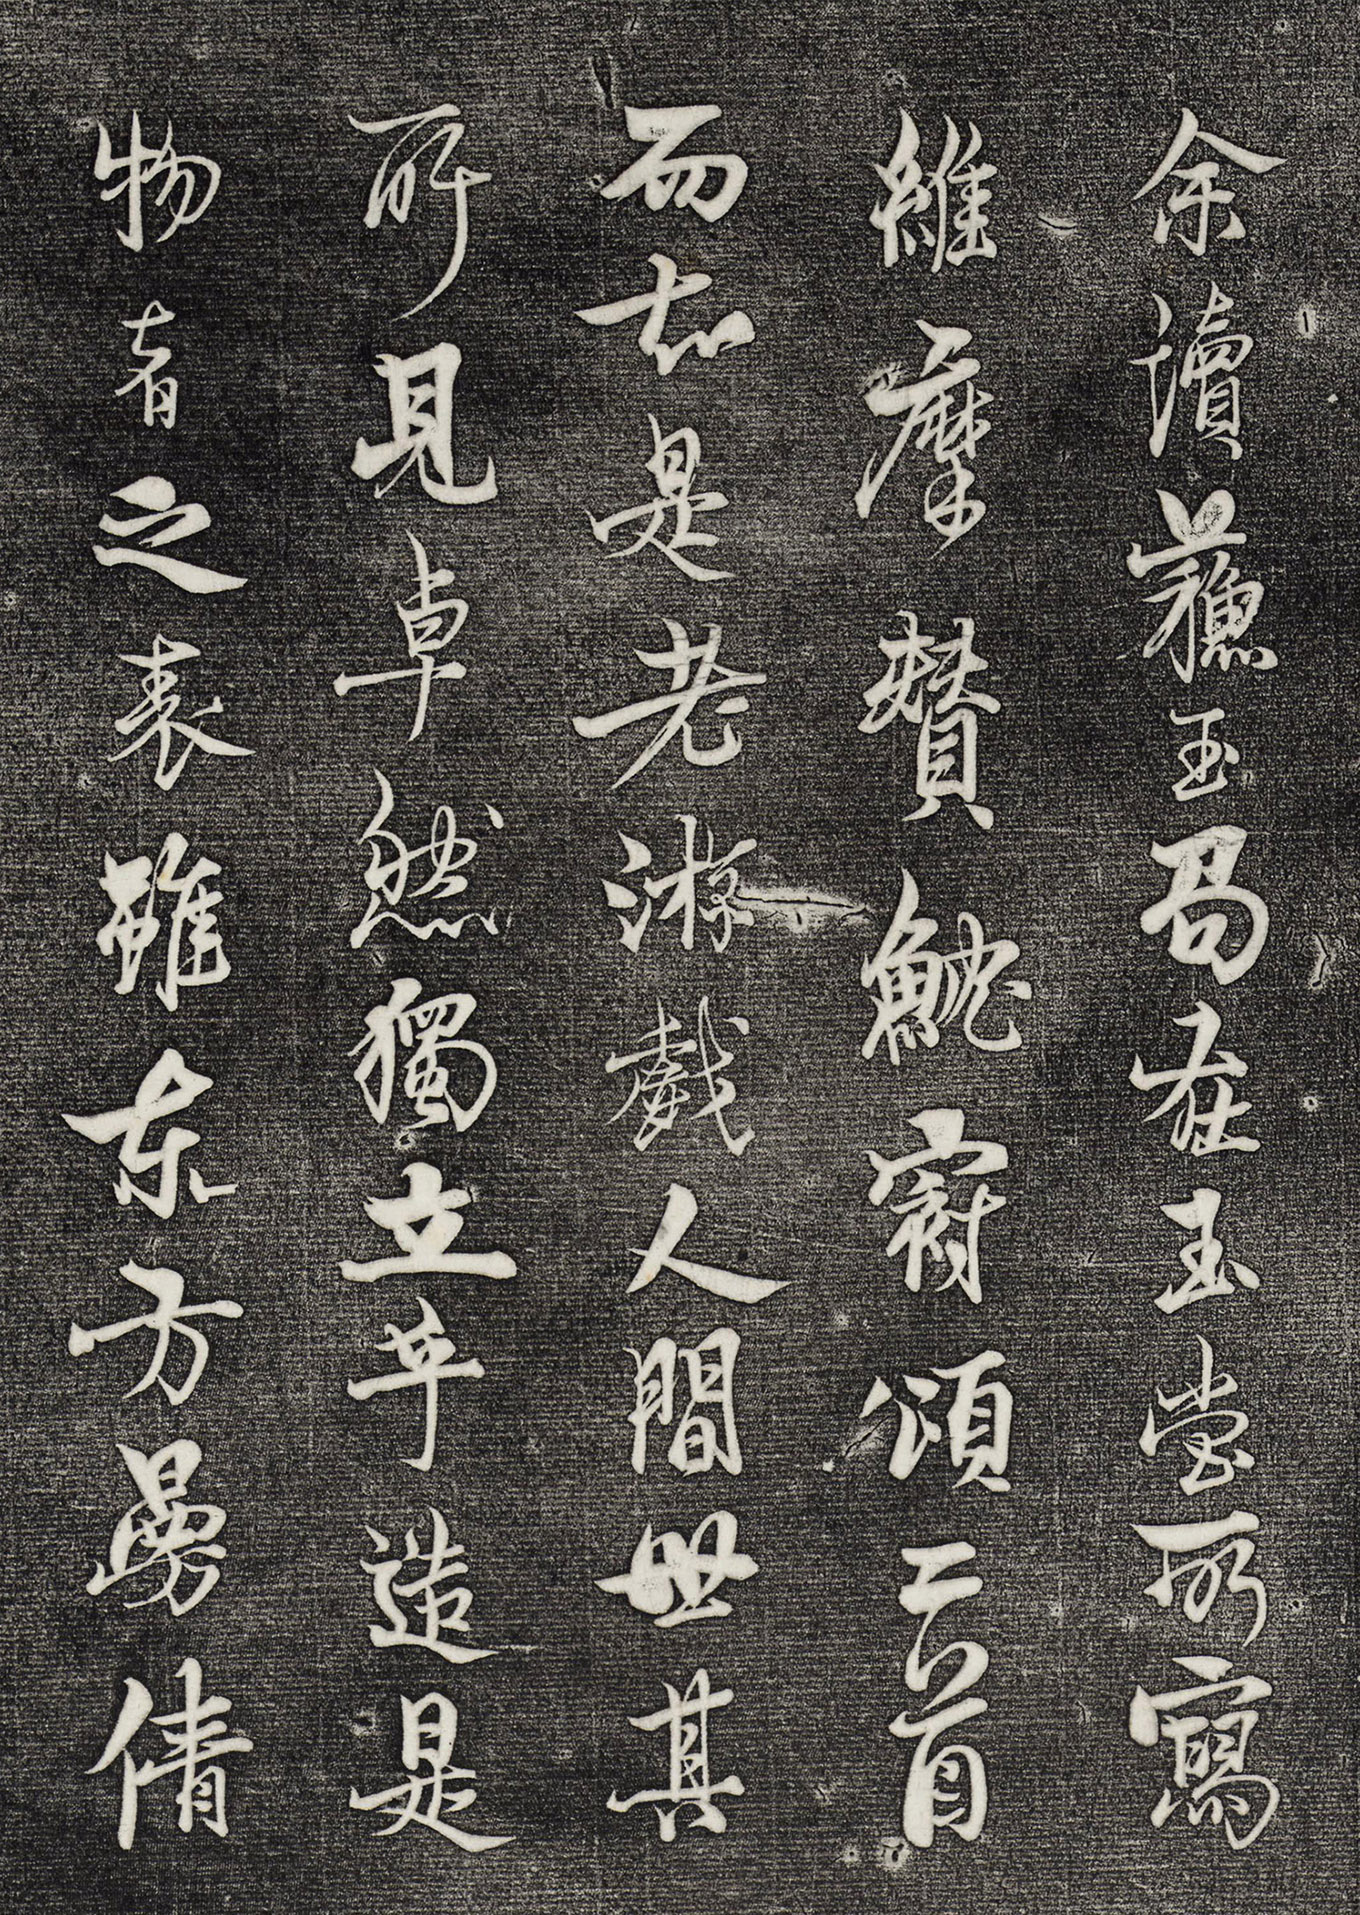 余讀蘓玉局在玉堂所寫
維摩贊魫冠頌二首
而知是老游戲人間世其
所見卓然獨立乎造是
物者之表雖東方曼倩